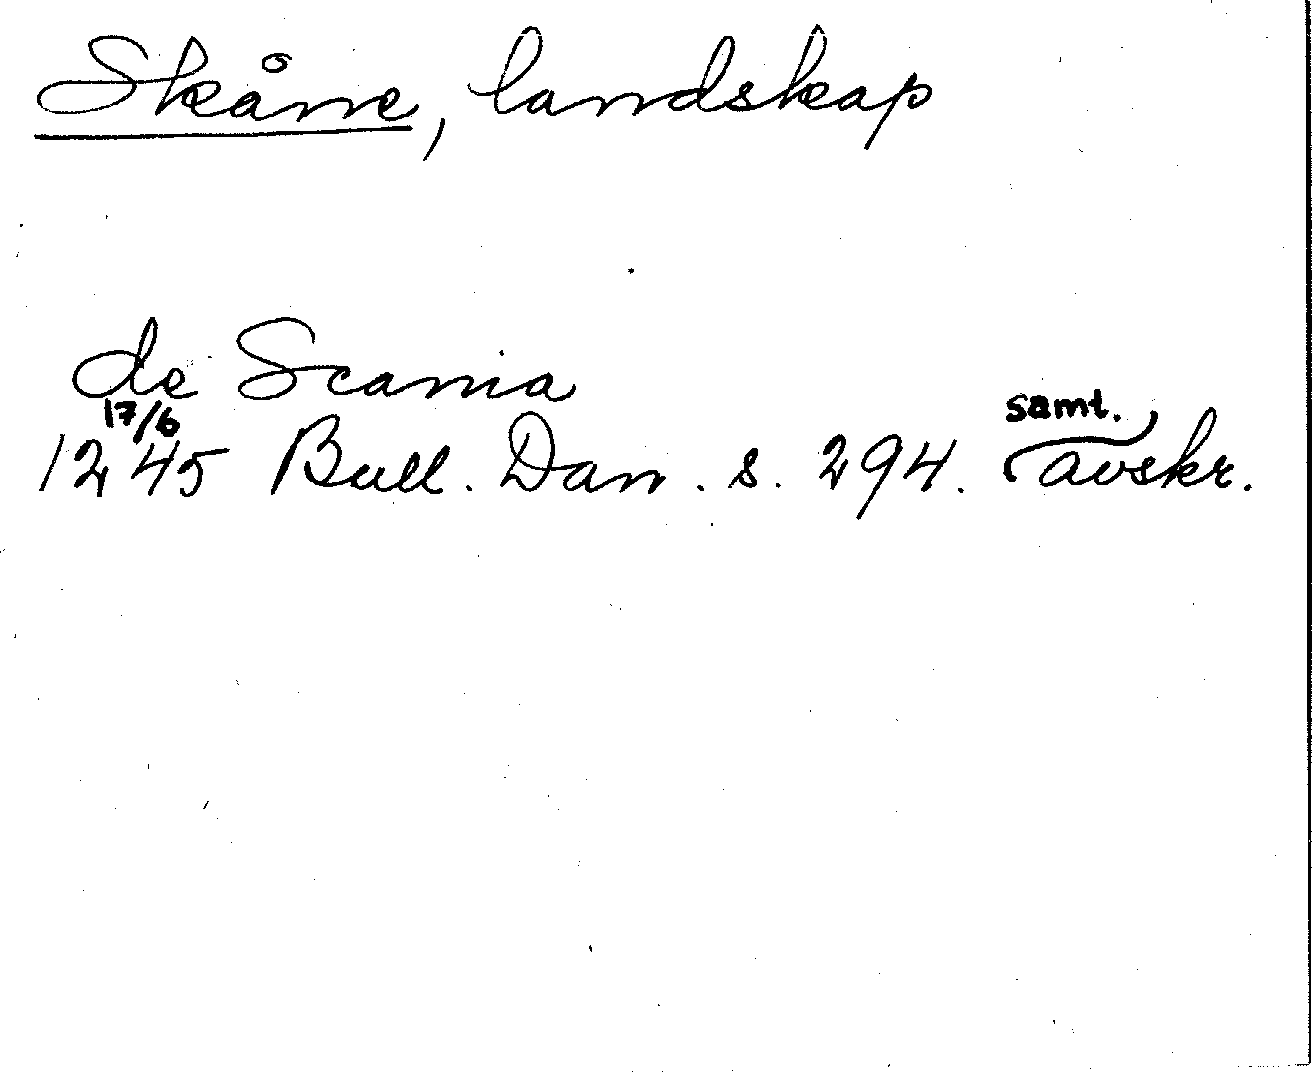 Skåne, landskap
de Scania
1245 17/6 Bull. Dan. s. 294. samt. avskr.